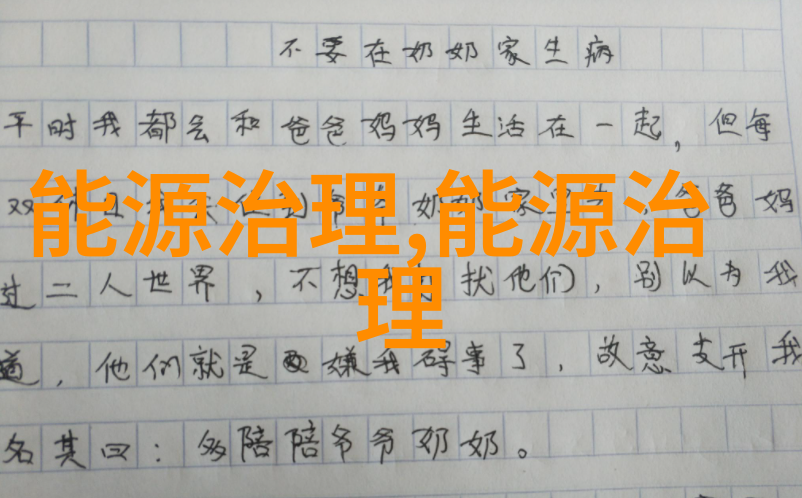 不要在奶奶家生病
平时我都会和爸爸妈妈生活在一起，但每
能源治理,能源治
理
双休日 奶奶家 ，爸爸妈
过二人世界，不想 扰他们，别以为我
道，他们就是嫌我碍事了，故意支开我
名其曰：多陪陪爷爷奶奶。